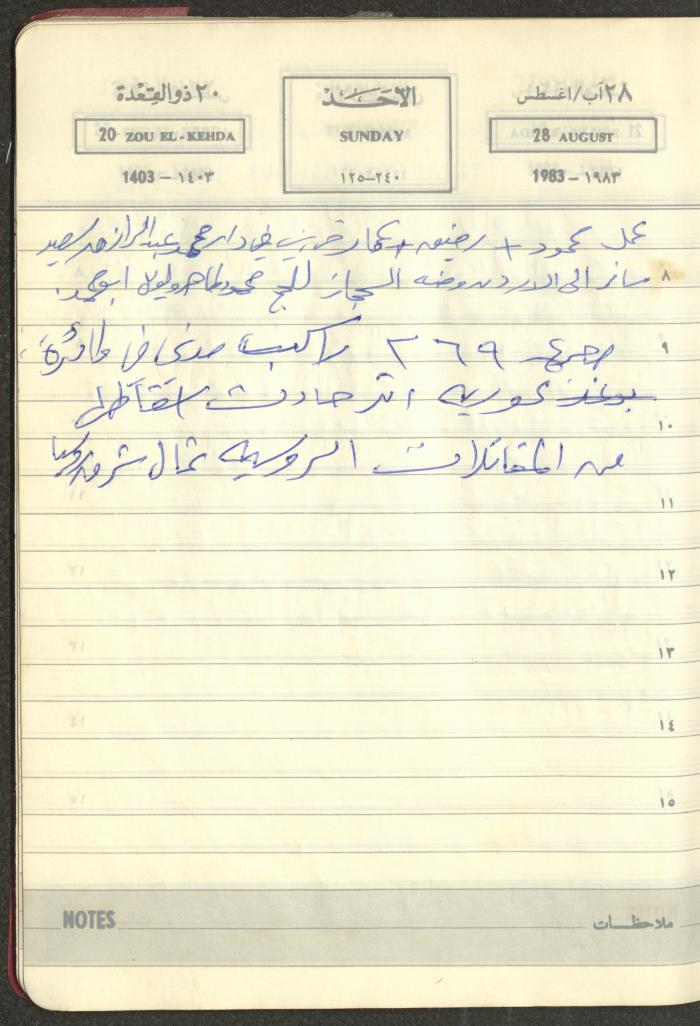 ٢٠ ذوالقعدة
20 ZOU EL-KEHDA
1403 - ١٤٠٣
الأحد
SUNDAY
١٢٥-٢٤٠
٢٨ آب/اغسطس
28 AUGUST
1983 - ١٩٨٣
عمل محمود + رفيق + في دار محمد عبد الرازق سعيد
٨ سافر الى الاردن ومنه الحجاز للحج محمود طاهر ابو محمد.
٩ ٢٦٩ راكب مدني في طائرة
بوينغ كوريه اثر حادث اسقاطها
١٠
من المقاتلات الروسيه شمال شرق
١١
١٢
١٣
١٤
١٥
NOTES
ملاحظات